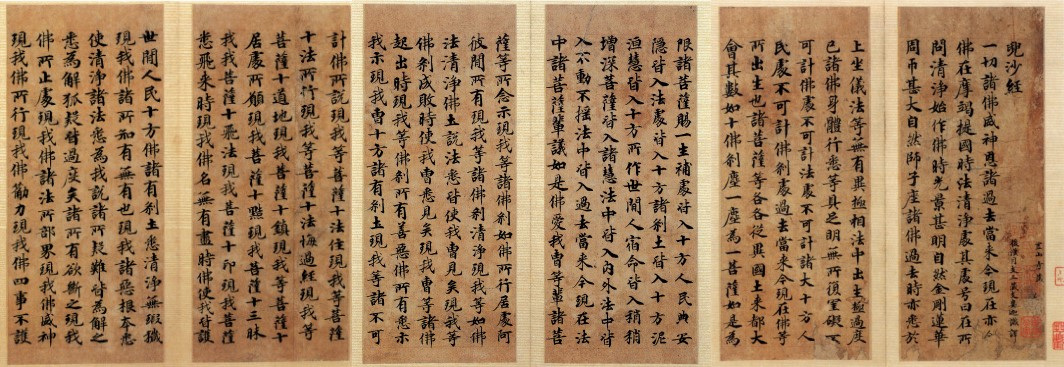 兜沙經
一切諸佛威神恩諸過去當來今現在亦尒
佛在摩竭提國時法清淨處其處号曰在所
問清淨始作佛時光景甚明自然金剛蓮華
周帀甚大自然師子座諸佛過去時亦悉於
上坐儀法等無有異極相法中出生極過度
已諸佛身體行悉等具足明無所復罣礙不
可計佛處不可計諸法處不可計諸大十方人
民處不可計佛剎處過去當來今現在佛等
所出生也諸菩薩等各各從異國土來都大
會其數如十佛剎塵一塵為一菩薩如是為
限諸菩薩賜一生補處皆入十方人民典安
隱皆入法處皆入十方諸剎土皆入十方泥
洹慧皆入十方所作世間人宿命皆入稍稍
增深菩薩皆入諸慧法中皆入內外法中皆
入不動不搖法中皆入過去當來今現在法
中諸菩薩輩議如是佛愛我曹等輩諸菩
薩等所念示現我等諸佛剎如佛所行居處所
彼間所有現我等諸佛剎清淨現我等如佛
法清淨佛土說法悉皆使我曹見矣現我等
佛剎成敗時使我曹悉見矣現我曹等諸佛
起出時現我等佛剎所有善惡佛所有悉示
我示現我曹十方諸有剎土現我等諸不可
計佛所說現我等菩薩十法住現我等菩薩
十法所行現我等菩薩十法悔過經現我等
菩薩十道地現我菩薩十鎮現我等菩薩十
居處所願現我菩薩十黠現我菩薩十三昧
我我菩薩十飛法現我菩薩十印現我菩薩
悉飛來時現我佛名無有盡時佛使我皆護
世間人民十方佛諸有剎土悉清淨無瑕穢
現我佛諸所知有無有也現我諸惡根本悉
使清淨諸法悉為我說諸所疑難皆為解之
悉為解狐疑皆過度矣諸所有欲斷之現我
佛所止處現我佛諸法所部界現我佛威神
現我佛所行現我佛勸力現我佛四事不護